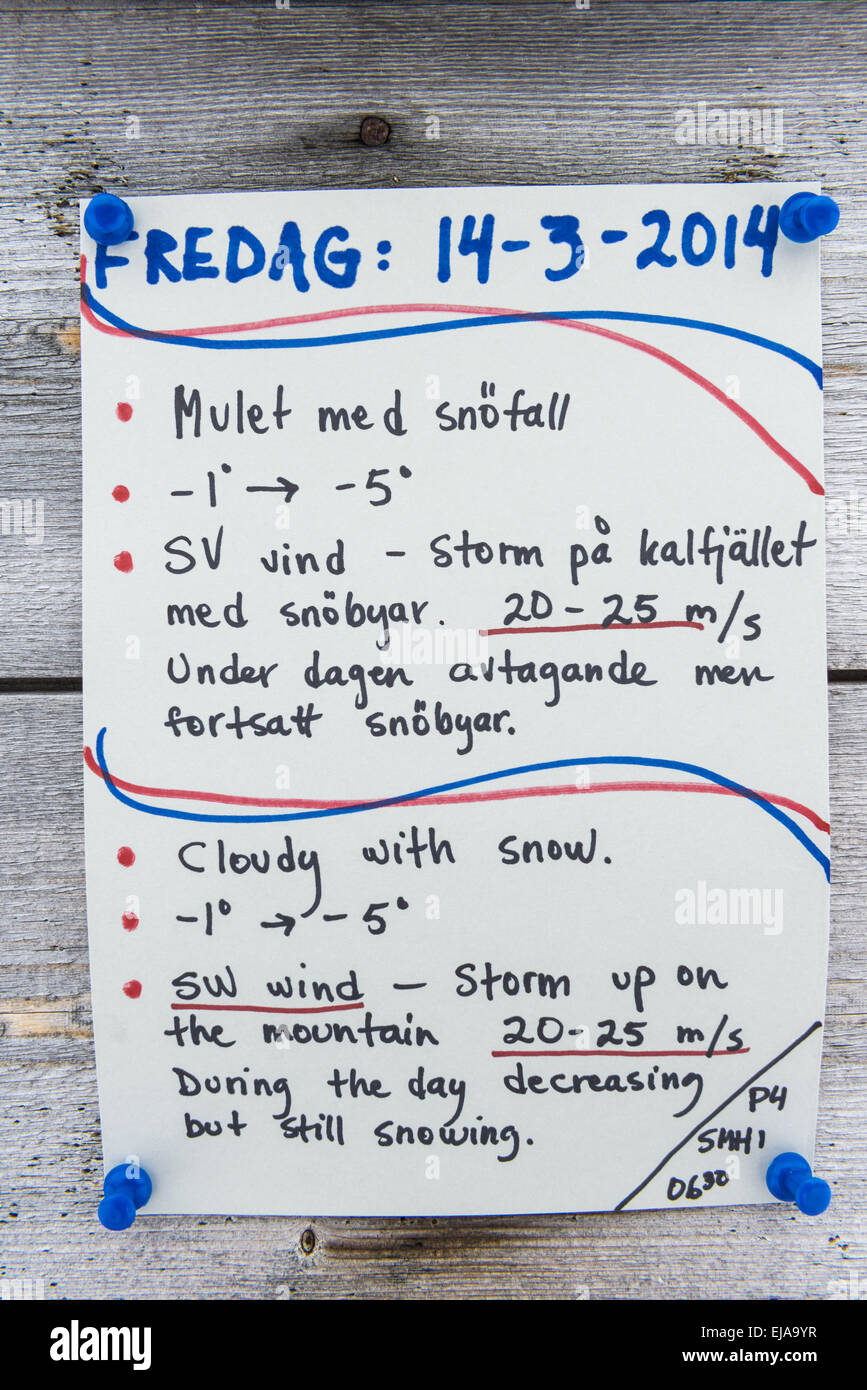 FREDAG: 14-3-2014
• Mulet med snöfall
• -1° → -5°
• SV vind - Storm på kalfjället
med snöbyar. 20-25 m/s
Under dagen avtagande men
fortsatt snöbyar.
• Cloudy with snow.
• -1° → -5°
• SW wind - Storm up on
the mountain 20-25 m/s
During the day decreasing
but still snowing.
P4
SMHI
06³⁰
alamy
alamy
alamy
Image ID: EJA9YR
www.alamy.com